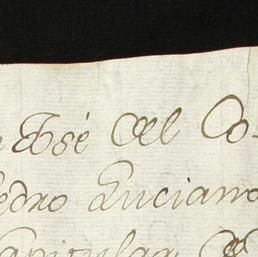 José del Co-
edro Luciano
apitular